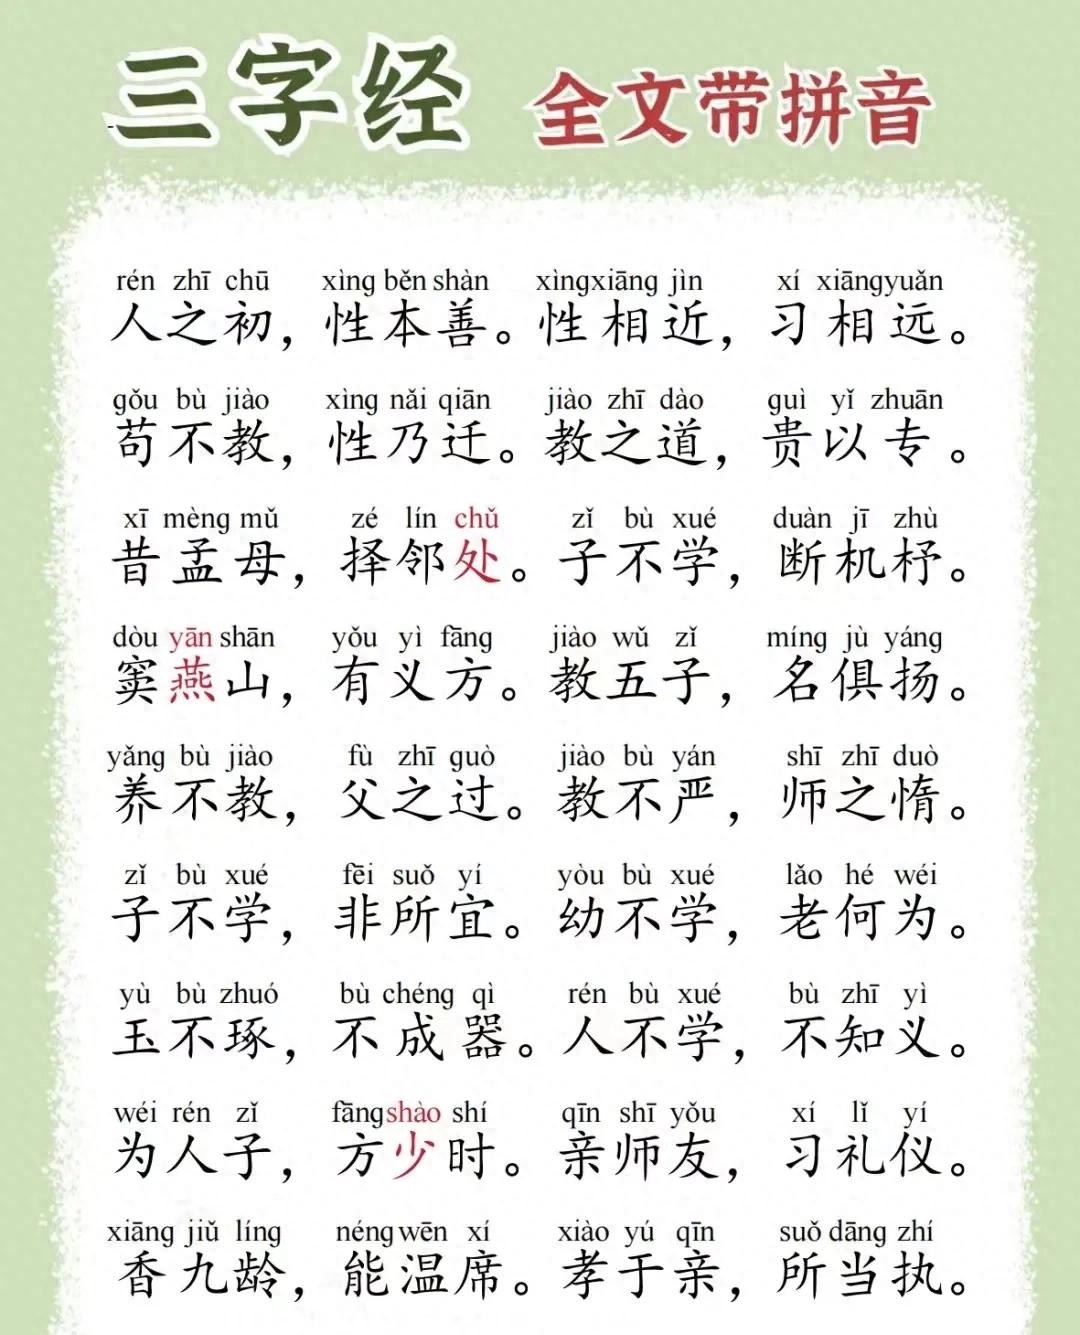 三字经 全文带拼音
rén zhī chū xìng běn shàn xìng xiāng jìn xí xiāng yuǎn
人之初，性本善。性相近，习相远。
gǒu bù jiào xìng nǎi qiān jiào zhī dào guì yǐ zhuān
苟不教，性乃迁。教之道，贵以专。
xī mèng mǔ zé lín chǔ zǐ bù xué duàn jī zhù
昔孟母，择邻处。子不学，断机杼。
dòu yān shān yǒu yì fāng jiào wǔ zǐ míng jù yáng
窦燕山，有义方。教五子，名俱扬。
yǎng bù jiào fù zhī guò jiào bù yán shī zhī duò
养不教，父之过。教不严，师之惰。
zǐ bù xué fēi suǒ yí yòu bù xué lǎo hé wéi
子不学，非所宜。幼不学，老何为。
yù bù zhuó bù chéng qì rén bù xué bù zhī yì
玉不琢，不成器。人不学，不知义。
wéi rén zǐ fāng shào shí qīn shī yǒu xí lǐ yí
为人子，方少时。亲师友，习礼仪。
xiāng jiǔ líng néng wēn xí xiào yú qīn suǒ dāng zhí
香九龄，能温席。孝于亲，所当执。